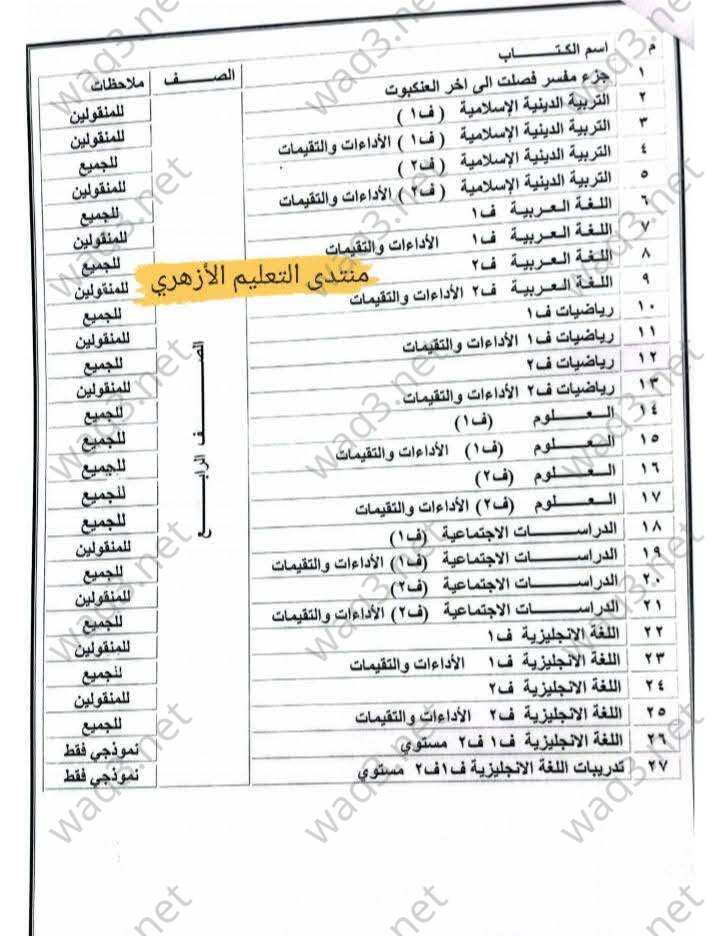 م اسم الكتـــــاب الصــــف ملاحظات
١ جزء مفسر فصلت الى اخر العنكبوت للمنقولين
٢ التربية الدينية الإسلامية (ف١) للمنقولين
٣ التربية الدينية الإسلامية (ف١) الأداءات والتقيمات للجميع
٤ التربية الدينية الإسلامية (ف٢) للمنقولين
٥ التربية الدينية الإسلامية (ف٢) الأداءات والتقيمات للجميع
٦ اللغة العربية ف١ للمنقولين
٧ اللغة العربية ف١ الأداءات والتقيمات للجميع
٨ اللغة العربية ف٢ للمنقولين
منتدى التعليم الأزهري
٩ اللغة العربية ف٢ الأداءات والتقيمات للجميع
١٠ رياضيات ف١ للمنقولين
١١ رياضيات ف١ الأداءات والتقيمات للجميع
١٢ رياضيات ف٢ للمنقولين
١٣ رياضيات ف٢ الأداءات والتقيمات للجميع
١٤ العـــــلوم (ف١) للجميع
١٥ العـــــلوم (ف١) الأداءات والتقيمات للجميع
١٦ العـــــلوم (ف٢) للجميع
١٧ العـــــلوم (ف٢) الأداءات والتقيمات للجميع
١٨ الدراســــات الاجتماعية (ف١) للمنقولين
١٩ الدراســــات الاجتماعية (ف١) الأداءات والتقيمات للجميع
٢٠ الدراســــات الاجتماعية (ف٢) للمنقولين
٢١ الدراســــات الاجتماعية (ف٢) الأداءات والتقيمات للجميع
٢٢ اللغة الانجليزية ف١ للمنقولين
٢٣ اللغة الانجليزية ف١ الأداءات والتقيمات للجميع
٢٤ اللغة الانجليزية ف٢ للمنقولين
٢٥ اللغة الانجليزية ف٢ الأداءات والتقيمات للجميع
٢٦ اللغة الانجليزية ف١ ف٢ مستوي نموذجي فقط
٢٧ تدريبات اللغة الانجليزية ف١ف٢ مستوي نموذجي فقط
الصـــــف الرابـــــع
waq3.net